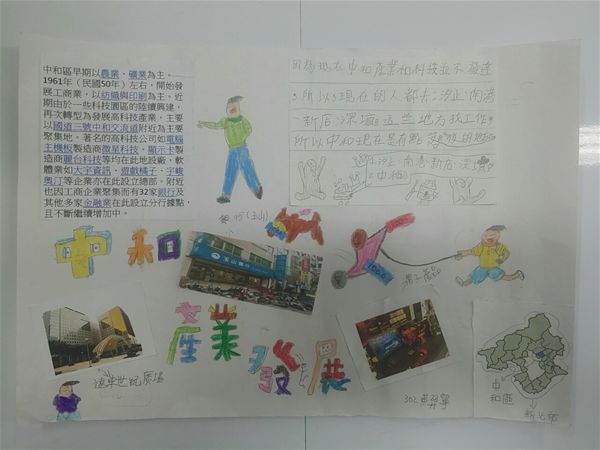 中和區早期以農業、礦業為主。
1961年（民國50年）左右，開始發
展工商業，以紡織與印刷為主。近
期由於一些科技園區的陸續興建，
再次轉型為發展高科技產業，主要
以國道三號中和交流道附近為主要
聚集地。著名的高科技公司如電腦
主機板製造商微星科技、顯示卡製
造商麗台科技等均在此地設廠，軟
體業如大宇資訊、遊戲橘子、宇峻
奧汀等企業亦在此設立總部。附近
也因工商企業聚集而有32家銀行及
其他多家金融業在此設立分行據點，
且不斷繼續增加中。
因為現在中和產業和科技並不發達
所以現在的人都去汐止、南港
、新店、深坑這些地方找工作，
所以中和現在是有點落後的
汐止 南港 新店 深坑
中和
銀行(玉山)
中和
產業發展
遠東世紀廣場
302
中和區
新北市